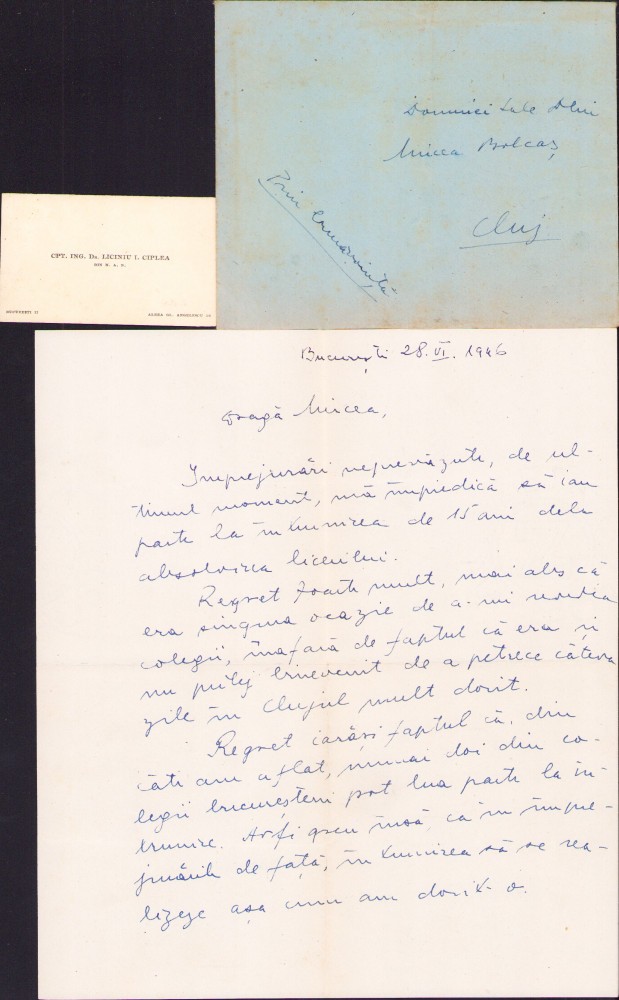 Domniei Sale Dlui
Mircea Bolcaș
Cluj
Prin bunăvoință
CPT. ING. Dr. LICINIU I. CIPLEA
DIN M. A. N.
BUCUREȘTI II
ALEEA DR.
București 28.VI.1946
Dragă Mircea,
Împrejurări neprevăzute, de ul-
timul moment, mă împiedică să iau
parte la întrunirea de 15 ani dela
absolvirea liceului.
Regret foarte mult, mai ales că
era singura ocazie de a-mi revedea
colegii, înafară de faptul că era și
un prilej binevenit de a petrece câteva
zile în Clujul mult dorit.
Regret iarăși faptul că, din
câte am aflat, numai doi din co-
legii bucureșteni pot lua parte la în-
trunire. Ar fi greu însă, ca în împre-
jurările de față, întrunirea să se rea-
lizeze așa cum am dorit-o.